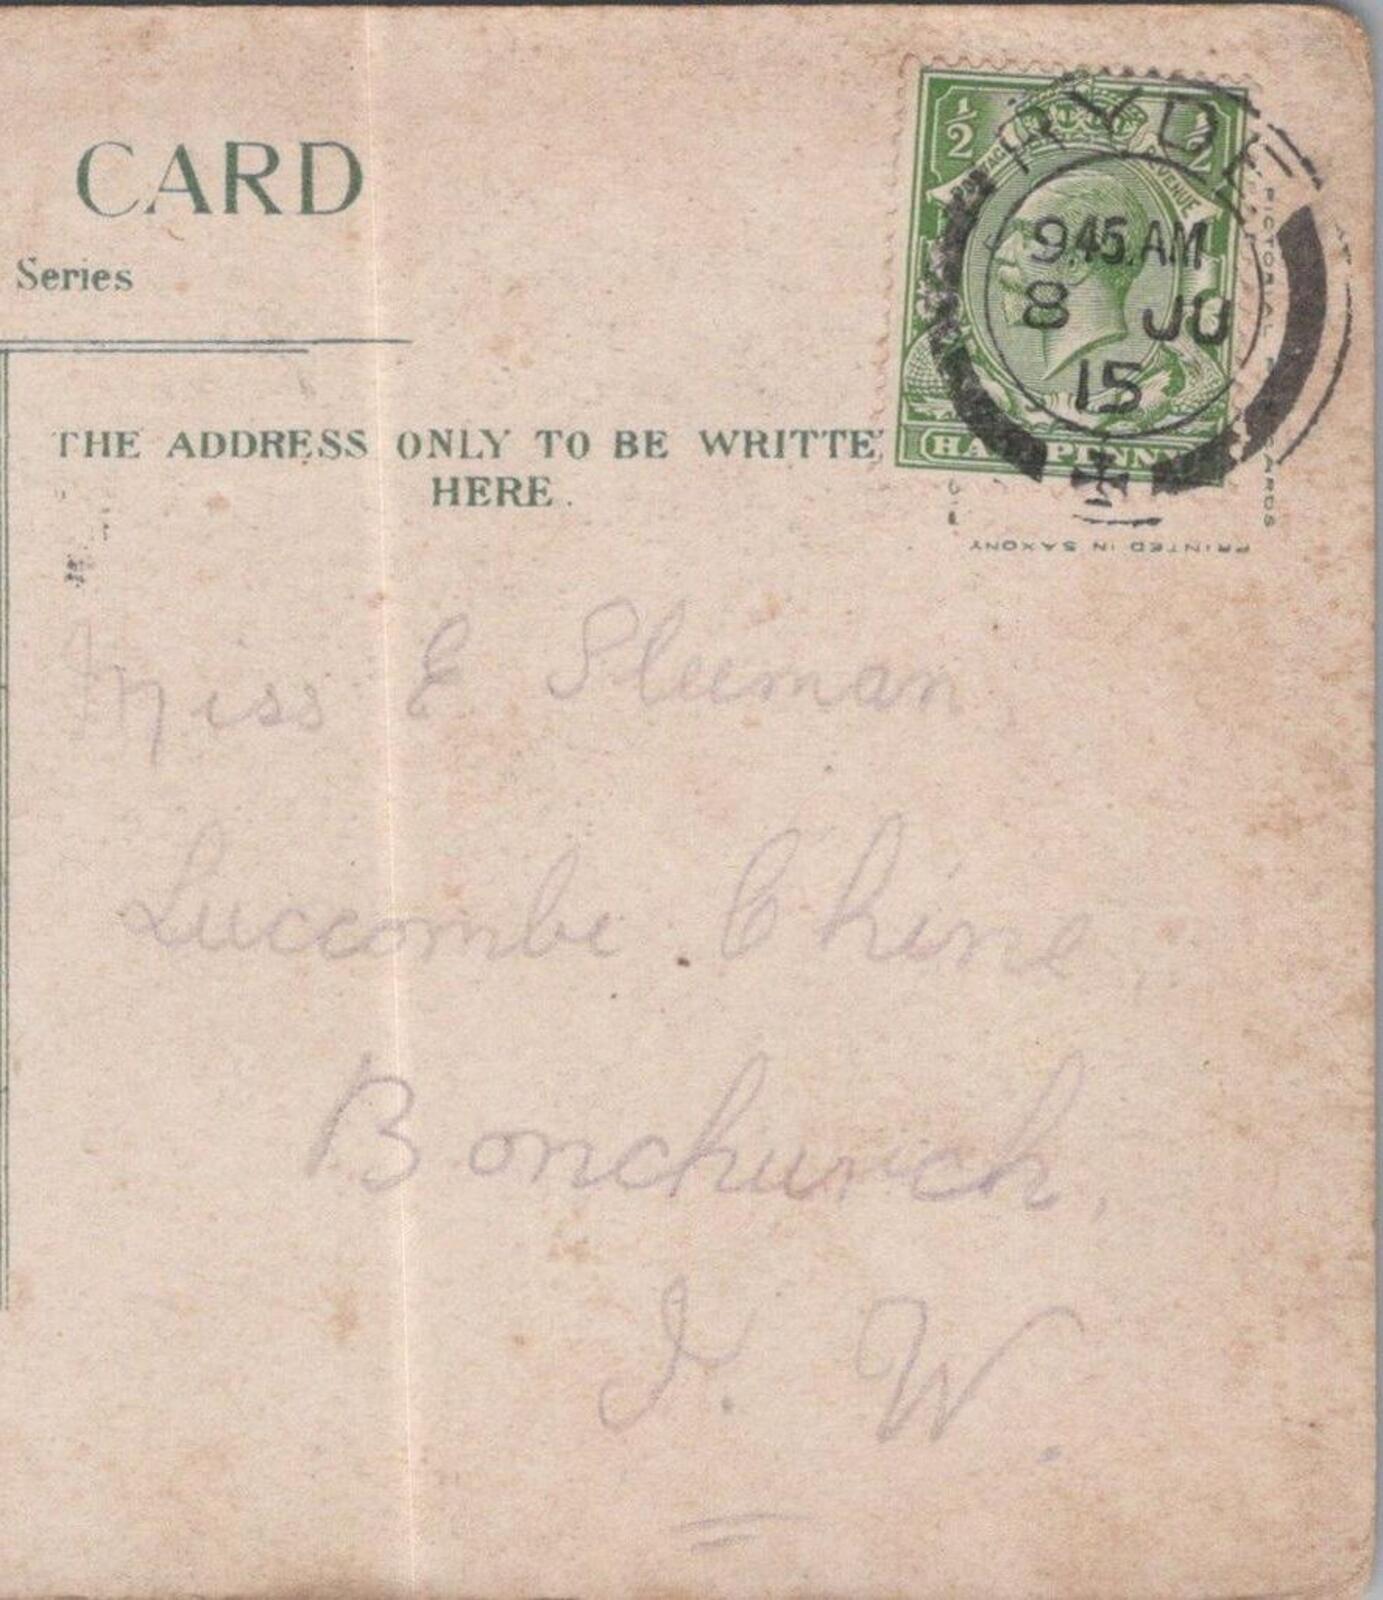 CARD
Series
THE ADDRESS ONLY TO BE WRITTE
HERE.
½ ½
POSTAGE REVENUE
HALFPENNY
RYDE
9.45.AM
8 JU
15
PICTORIAL
CARDS
PRINTED IN SAXONY
Miss E Sleeman,
Luccombe Chine,
Bonchurch,
I. W.